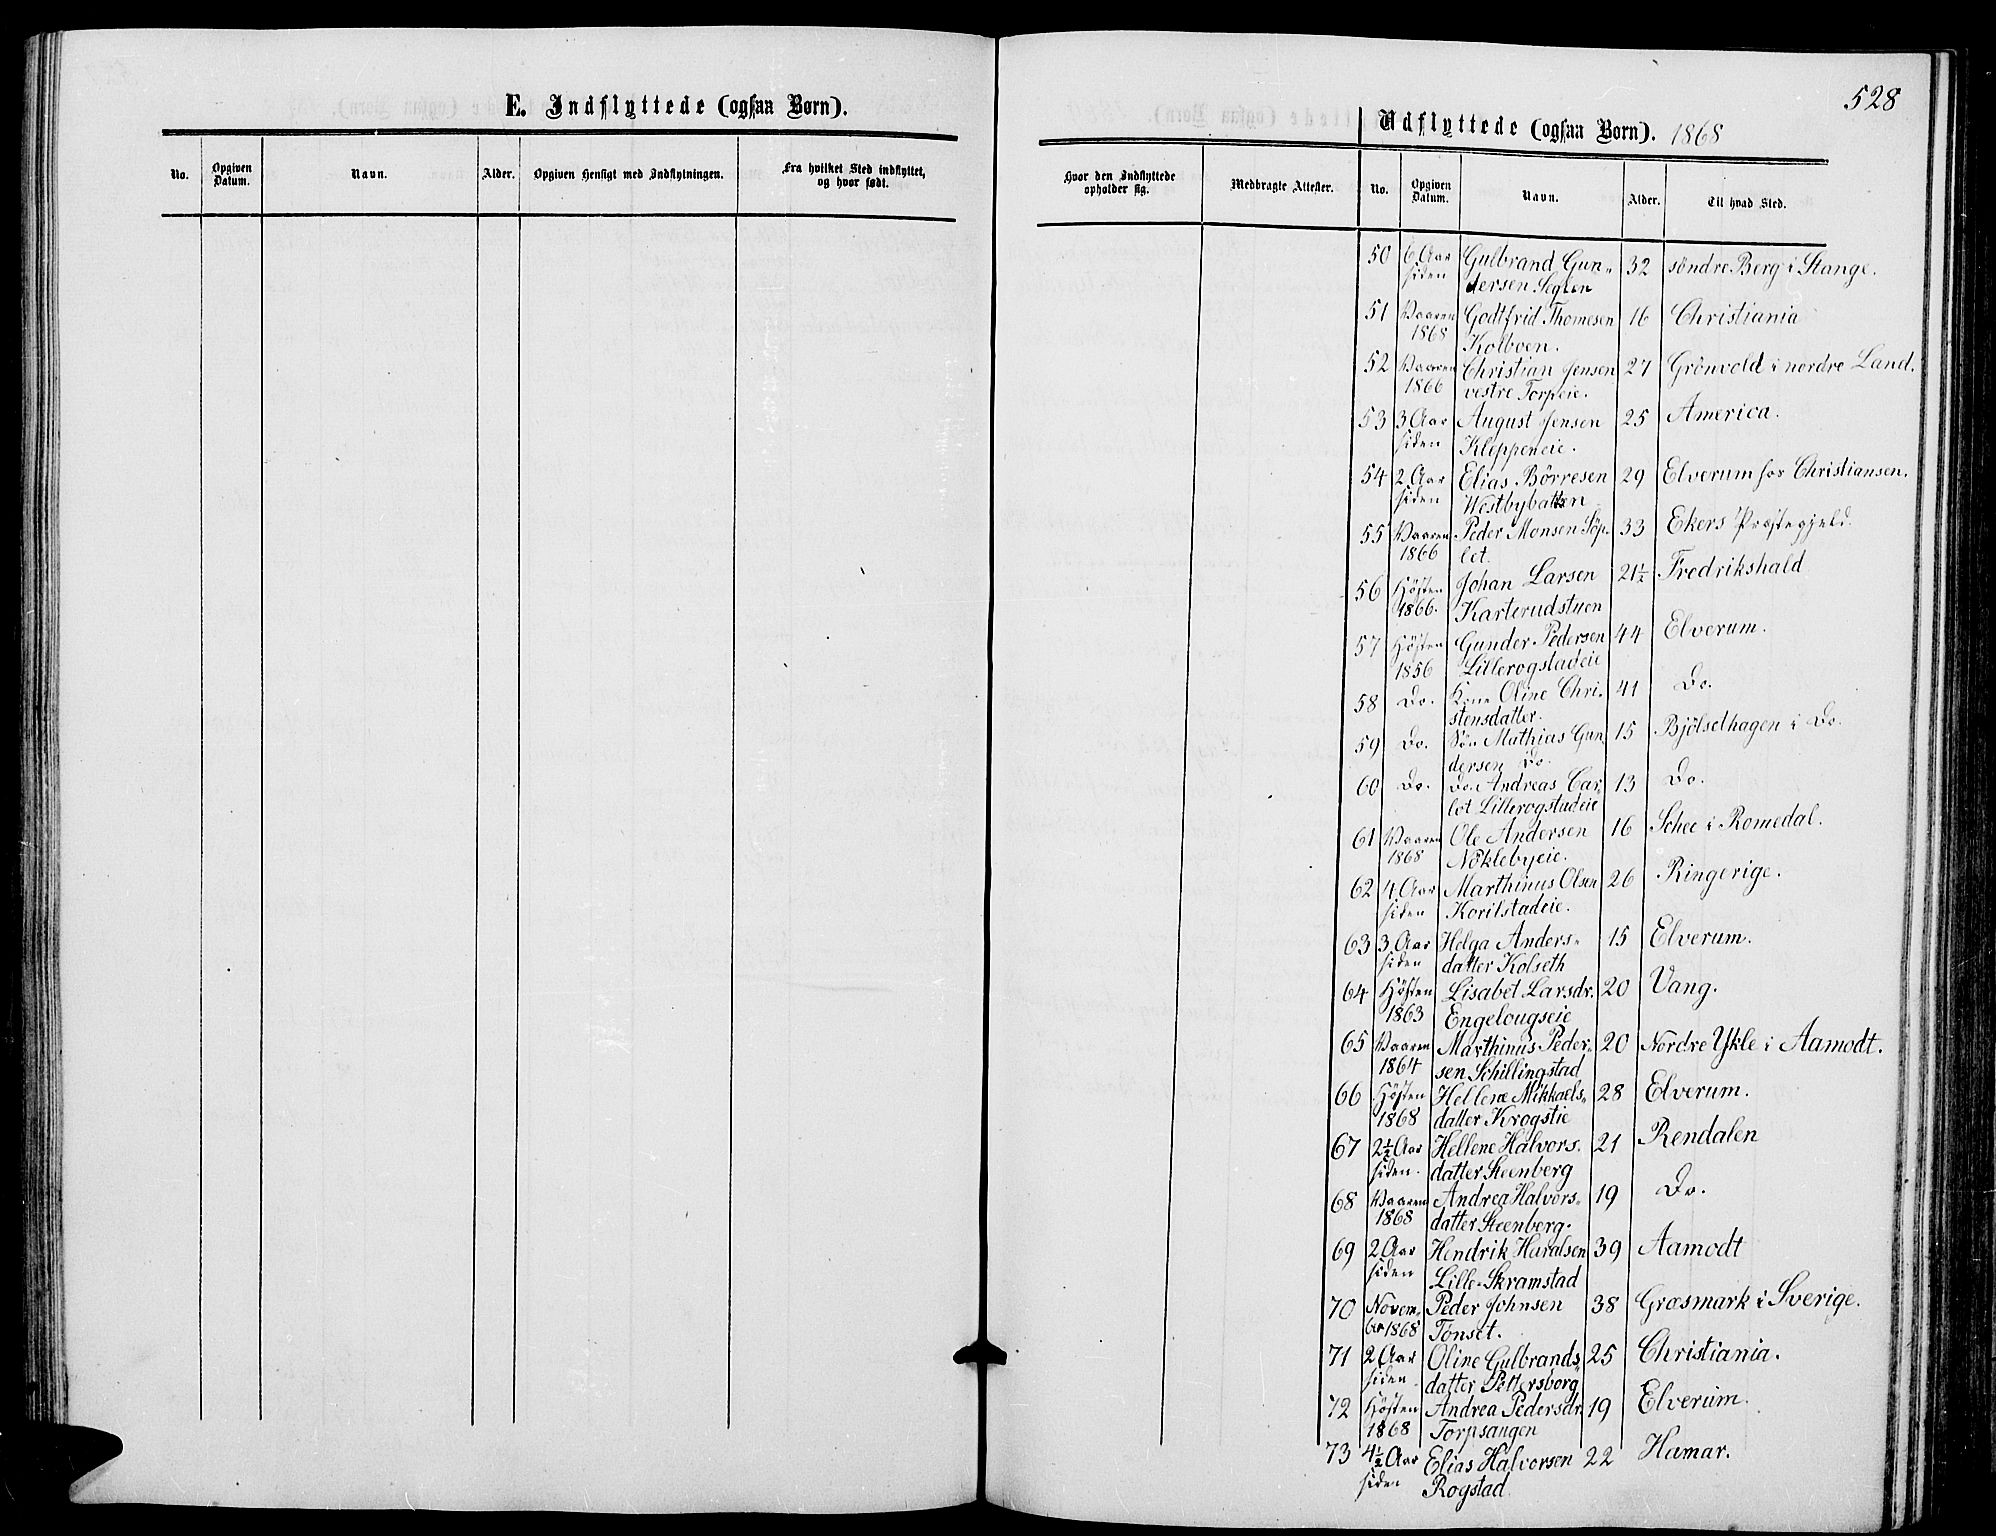 528
E. Indflyttede (ogsaa Børn).
No. Opgiven Datum. Navn. Alder. Opgiven Hensigt med Indflytningen. Fra hvilket Sted indflyttet, og hvor født.
Udflyttede (ogsaa Børn). 1868
Hvor den Indflyttede opholder sig. Medbragte Attester. No. Opgiven Datum. Navn. Alder. Til hvad Sted.
50 6 Aar Gulbrand Gun- 32 søndre Berg i Stange.
siden dersen Seglen
51 Vaaren Godtfrid Thomesen 16 Christiania
1868 Kolboen.
52 Vaaren Christian Jensen 27 Grönvold i nordre Land.
1866 vestre Torpeie.
53 3 Aar August Jensen 25 America.
siden Kleppeneie.
54 2 Aar Elias Börresen 29 Elverum hos Christiansen.
siden Westbybakken
55 Vaaren Peder Monsen Söp- 33 Ekers Præstegjeld.
1866 let.
56 Hösten Johan Larsen 21½ Fredrikshald
1866. Karterudstuen
57 Hösten Gunder Pedersen 44 Elverum.
1856 Lillerogstadeie
58 Do. Kone Oline Chri- 41 Do.
stensdatter.
59 Do. Sön Mathias Gun- 15 Bjölsethagen i Do.
dersen Do.
60 Do. Do. Andreas Car- 13 Do.
lot Lillerogstadeie
61 Vaaren Ole Andersen 16 Schee i Romedal.
1868 Nöklebyeie.
62 4 Aar Marthinus Olsen 26 Ringerige.
siden Korilstadeie.
63 3 Aar Helga Anders- 15 Elverum.
siden datter Kolseth
64 Hösten Lisabet Larsdr. 20 Vang.
1863 Engelougseie
65 Vaaren Marthinus Peder- 20 Nordre Ykle i Aamodt.
1864 sen Schillingstad
66 Hösten Hellene Mikkaels- 28 Elverum.
1868 datter Krogstie
67 2½ Aar Hellene Halvors- 21 Rendalen
siden. datter Steenberg
68 Vaaren Andrea Halvors- 19 Do.
1868 datter Steenberg.
69 2 Aar Hendrik Haralsen 39 Aamodt
siden Lille-Skramstad
70 Novem- Peder Johnsen 38 Grosmark i Sverige.
ber 1868 Tönset.
71 2 Aar Oline Gulbrands- 25 Christiania.
siden datter Pettersborg
72 Hösten Andrea Pedersdr. 19 Elverum.
1868 Torpsangen
73 4½ Aar Elias Halvorsen 22 Hamar.
siden Rogstad